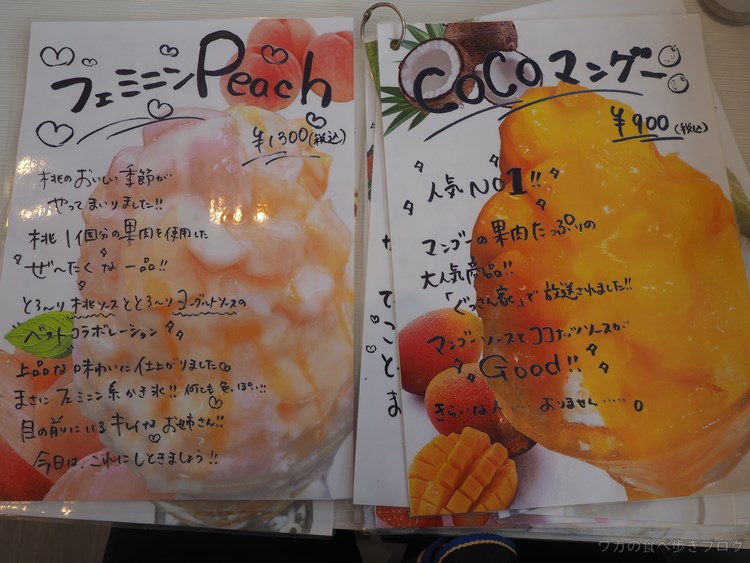 フェミニンPeach
¥1300(税込)
桃のおいしい季節が
やってまいりました!!
桃1個分の果肉を使用した
ぜ〜たくな一品!!
とろ〜り桃ソースととろ〜りヨーグルトソースの
ベストコラボレーション
上品な味わいに仕上がりました
まさにフェミニン系かき氷!!何とも色っぽい!!
目の前にいるキレイなお姉さん!!
今日は、これにしときましょう!!
COCOマンゴー
¥900(税込)
人気NO1!!
マンゴーの果肉たっぷりの
大人気商品!!
「ぐっさん家」で放送されました!!
マンゴーソースとココナッツソースが
Good!!
きらいな人……おりません……。
ワカの食べ歩きブログ